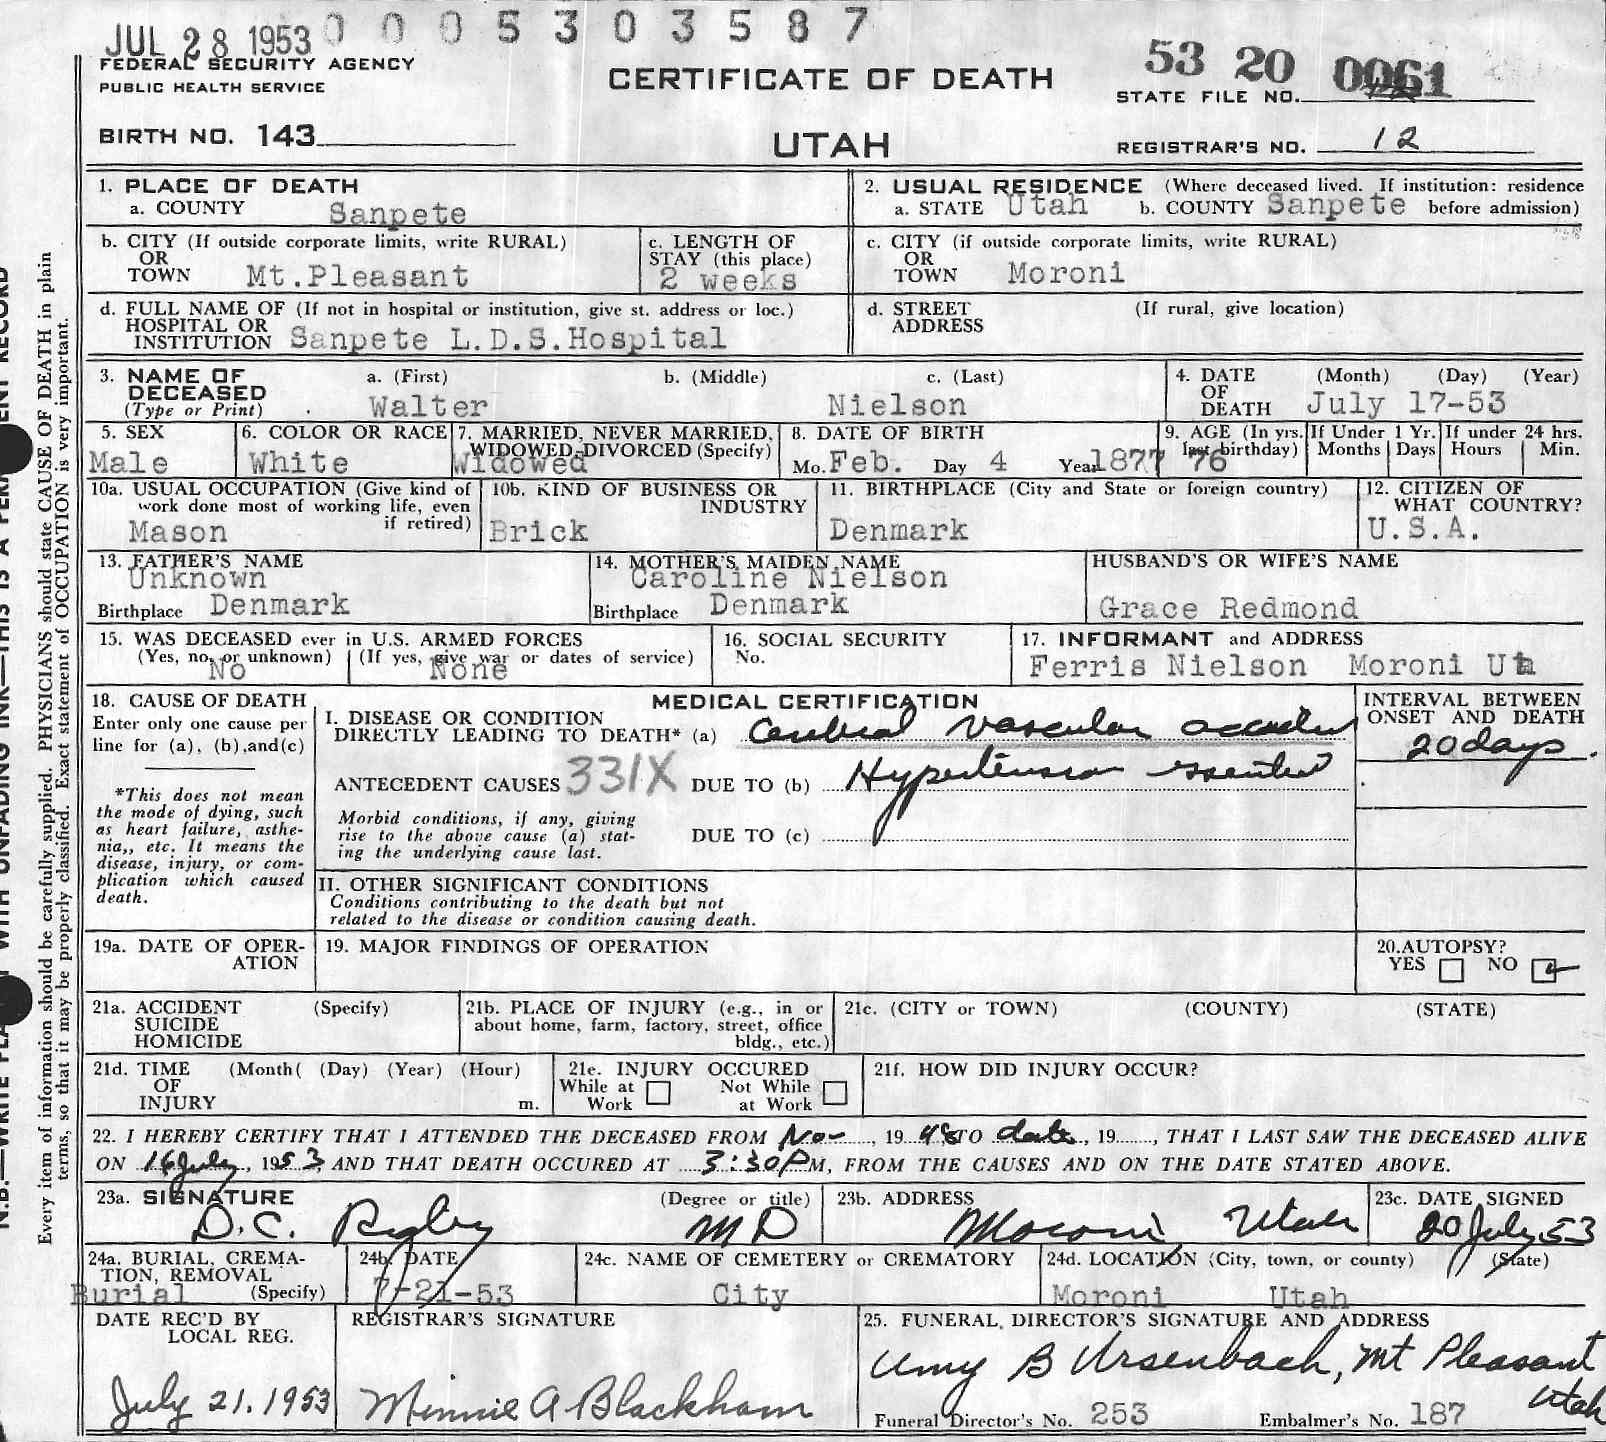 JUL 28 1953 0 0 0 5 3 0 3 5 8 7
FEDERAL SECURITY AGENCY
PUBLIC HEALTH SERVICE
CERTIFICATE OF DEATH
53 20 0061
STATE FILE NO.
BIRTH NO. 143
UTAH
REGISTRAR'S NO. 12
1. PLACE OF DEATH
a. COUNTY Sanpete
2. USUAL RESIDENCE (Where deceased lived. If institution: residence
a. STATE Utah b. COUNTY Sanpete before admission)
b. CITY (If outside corporate limits, write RURAL)
OR
TOWN Mt.Pleasant
c. LENGTH OF
STAY (this place)
2 weeks
c. CITY (if outside corporate limits, write RURAL)
OR
TOWN Moroni
d. FULL NAME OF (If not in hospital or institution, give st. address or loc.)
HOSPITAL OR
INSTITUTION Sanpete L.D.S.Hospital
d. STREET (If rural, give location)
ADDRESS
3. NAME OF a. (First) b. (Middle) c. (Last)
DECEASED
(Type or Print) Walter Nielson
4. DATE (Month) (Day) (Year)
OF
DEATH July 17-53
5. SEX
Male
6. COLOR OR RACE
White
7. MARRIED, NEVER MARRIED,
WIDOWED, DIVORCED (Specify)
Widowed
8. DATE OF BIRTH
Mo. Feb. Day 4 Year 1877
9. AGE (In yrs.
last birthday)
76
If Under 1 Yr.
Months Days
If under 24 hrs.
Hours Min.
10a. USUAL OCCUPATION (Give kind of
work done most of working life, even
if retired)
Mason
10b. KIND OF BUSINESS OR
INDUSTRY
Brick
11. BIRTHPLACE (City and State or foreign country)
Denmark
12. CITIZEN OF
WHAT COUNTRY?
U.S.A.
13. FATHER'S NAME
Unknown
Birthplace Denmark
14. MOTHER'S MAIDEN NAME
Caroline Nielson
Birthplace Denmark
HUSBAND'S OR WIFE'S NAME
Grace Redmond
15. WAS DECEASED ever in U.S. ARMED FORCES
(Yes, no, or unknown) (If yes, give war or dates of service)
No None
16. SOCIAL SECURITY
No.
17. INFORMANT and ADDRESS
Ferris Nielson Moroni Uta
18. CAUSE OF DEATH
Enter only one cause per
line for (a), (b),and(c)
*This does not mean
the mode of dying, such
as heart failure, asthe-
nia,, etc. It means the
disease, injury, or com-
plication which caused
death.
MEDICAL CERTIFICATION
I. DISEASE OR CONDITION
DIRECTLY LEADING TO DEATH* (a) Cerebral vascular accident
ANTECEDENT CAUSES 331X DUE TO (b) Hypertension essential
Morbid conditions, if any, giving
rise to the above cause (a) stat-
ing the underlying cause last.
DUE TO (c)
INTERVAL BETWEEN
ONSET AND DEATH
20 days
II. OTHER SIGNIFICANT CONDITIONS
Conditions contributing to the death but not
related to the disease or condition causing death.
19a. DATE OF OPER-
ATION
19. MAJOR FINDINGS OF OPERATION
20.AUTOPSY?
YES NO
21a. ACCIDENT (Specify)
SUICIDE
HOMICIDE
21b. PLACE OF INJURY (e.g., in or
about home, farm, factory, street, office
bldg., etc.)
21c. (CITY or TOWN) (COUNTY) (STATE)
21d. TIME (Month( (Day) (Year) (Hour)
OF
INJURY m.
21e. INJURY OCCURED
While at Not While
Work at Work
21f. HOW DID INJURY OCCUR?
22. I HEREBY CERTIFY THAT I ATTENDED THE DECEASED FROM Nov, 19 48 TO date, 19......, THAT I LAST SAW THE DECEASED ALIVE
ON 16 July, 1953 AND THAT DEATH OCCURED AT 3:30 PM, FROM THE CAUSES AND ON THE DATE STATED ABOVE.
23a. SIGNATURE (Degree or title)
D.C. Rigby MD
23b. ADDRESS
Moroni Utah
23c. DATE SIGNED
20 July 53
24a. BURIAL, CREMA-
TION, REMOVAL
(Specify)
Burial
24b. DATE
7-21-53
24c. NAME OF CEMETERY or CREMATORY
City
24d. LOCATION (City, town, or county) (State)
Moroni Utah
DATE REC'D BY
LOCAL REG.
July 21. 1953
REGISTRAR'S SIGNATURE
Minnie A Blackham
25. FUNERAL DIRECTOR'S SIGNATURE AND ADDRESS
Amy B Ursenbach, Mt Pleasant
Utah
Funeral Director's No. 253 Embalmer's No. 187
Every item of information should be carefully supplied. PHYSICIANS should state CAUSE OF DEATH in plain
terms, so that it may be properly classified. Exact statement of OCCUPATION is very important.